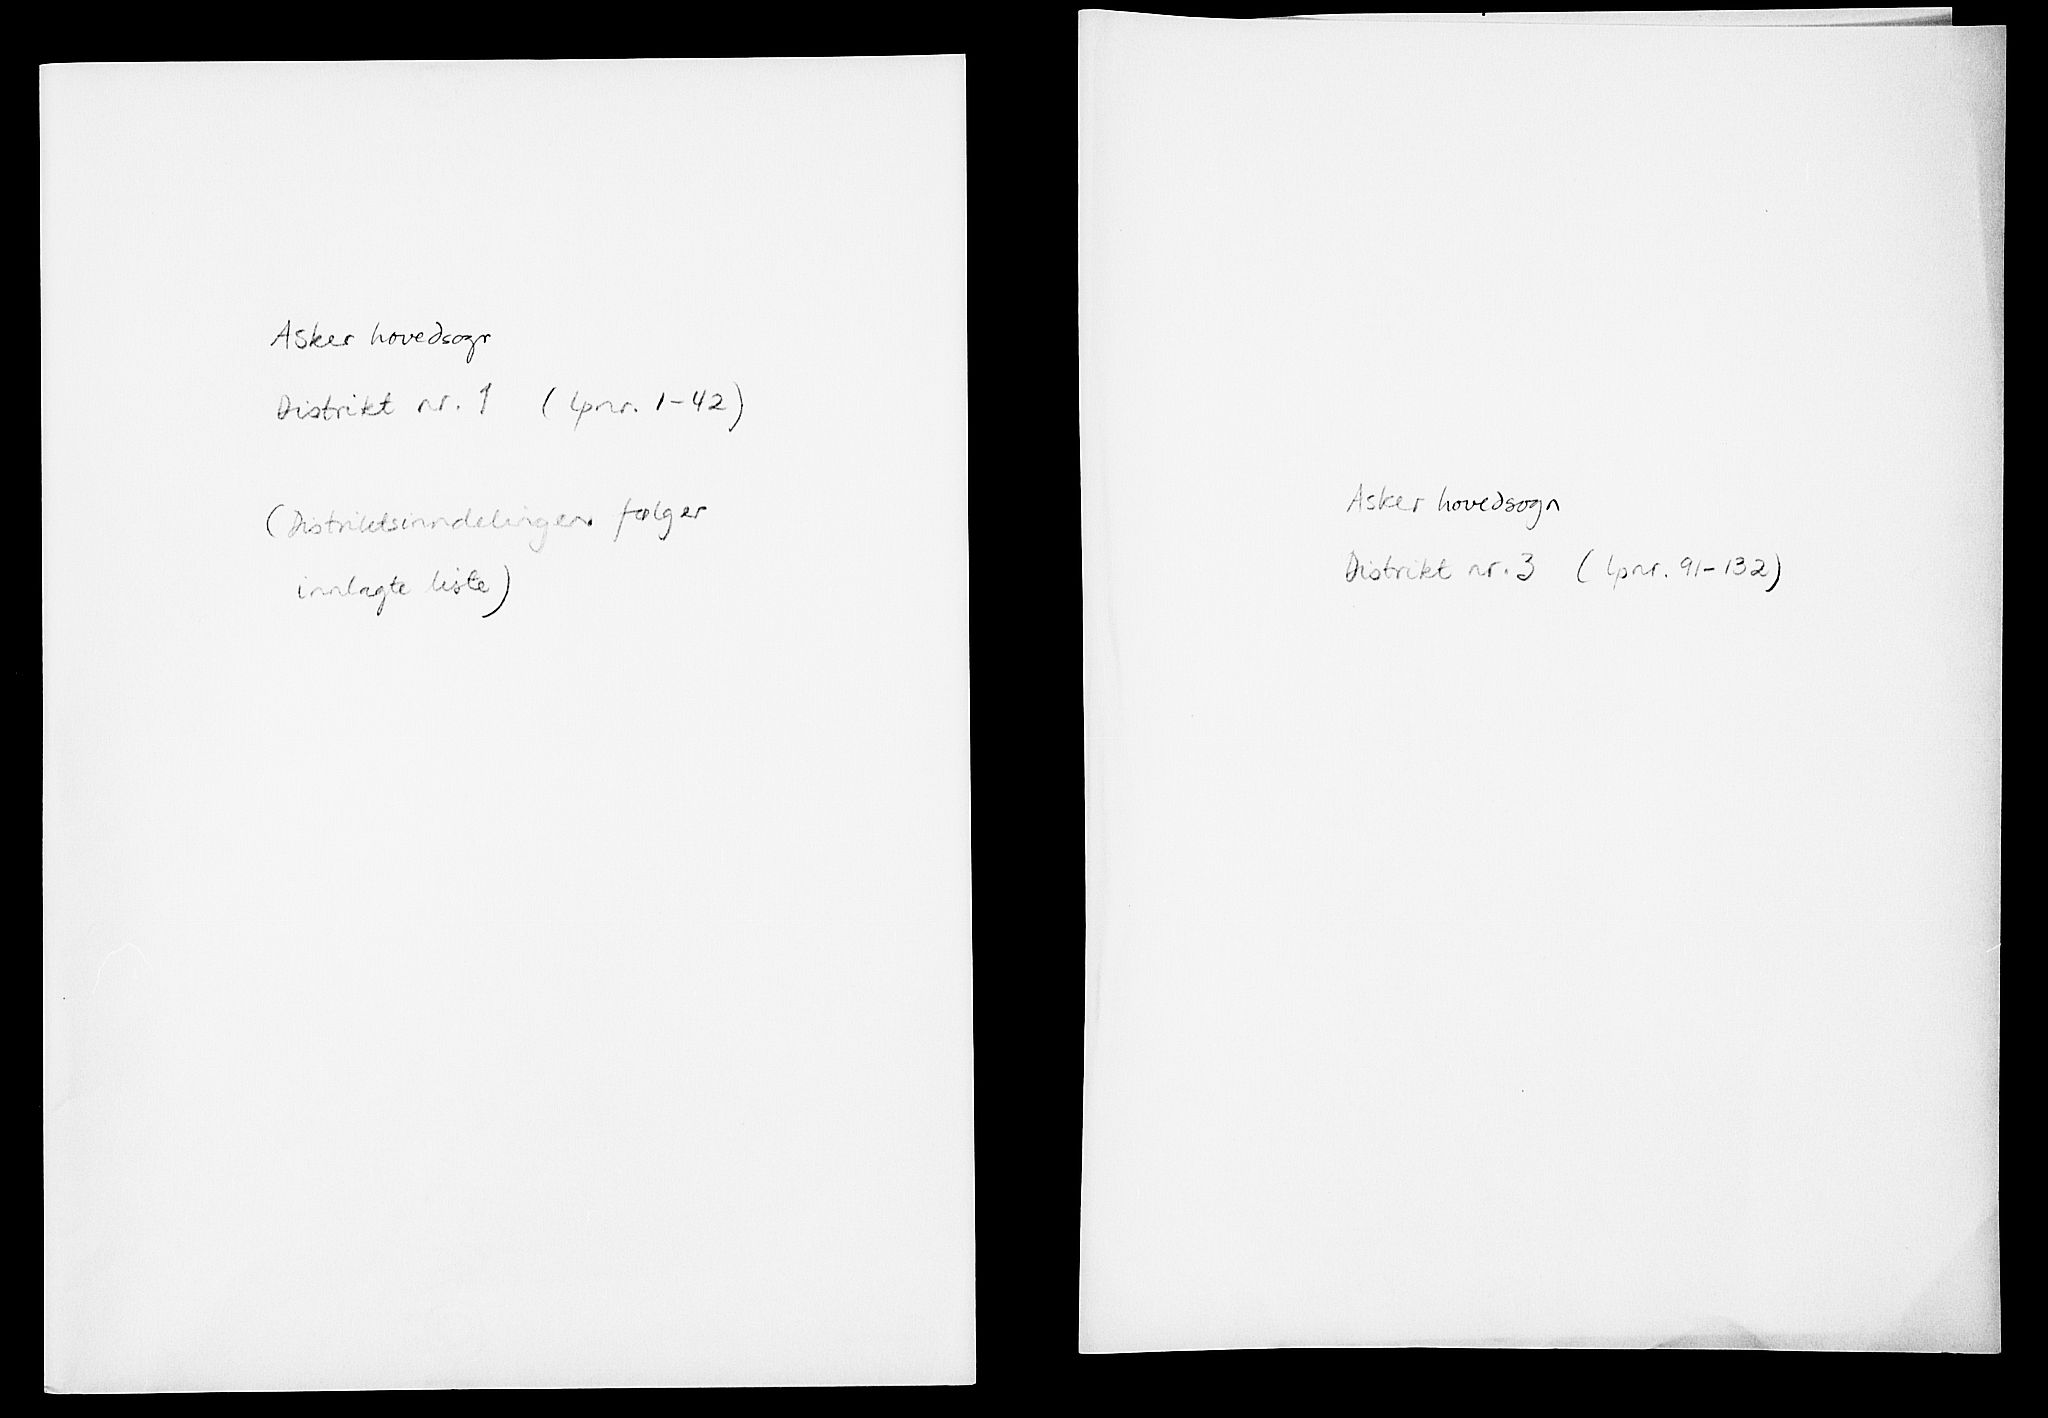 Asker hovedsogn
Distrikt nr. 1 (lpnr. 1-42)
(Distriktsinndelingen følger
innlagte liste)
Asker hovedsogn
Distrikt nr. 3 (lpnr. 91-132)